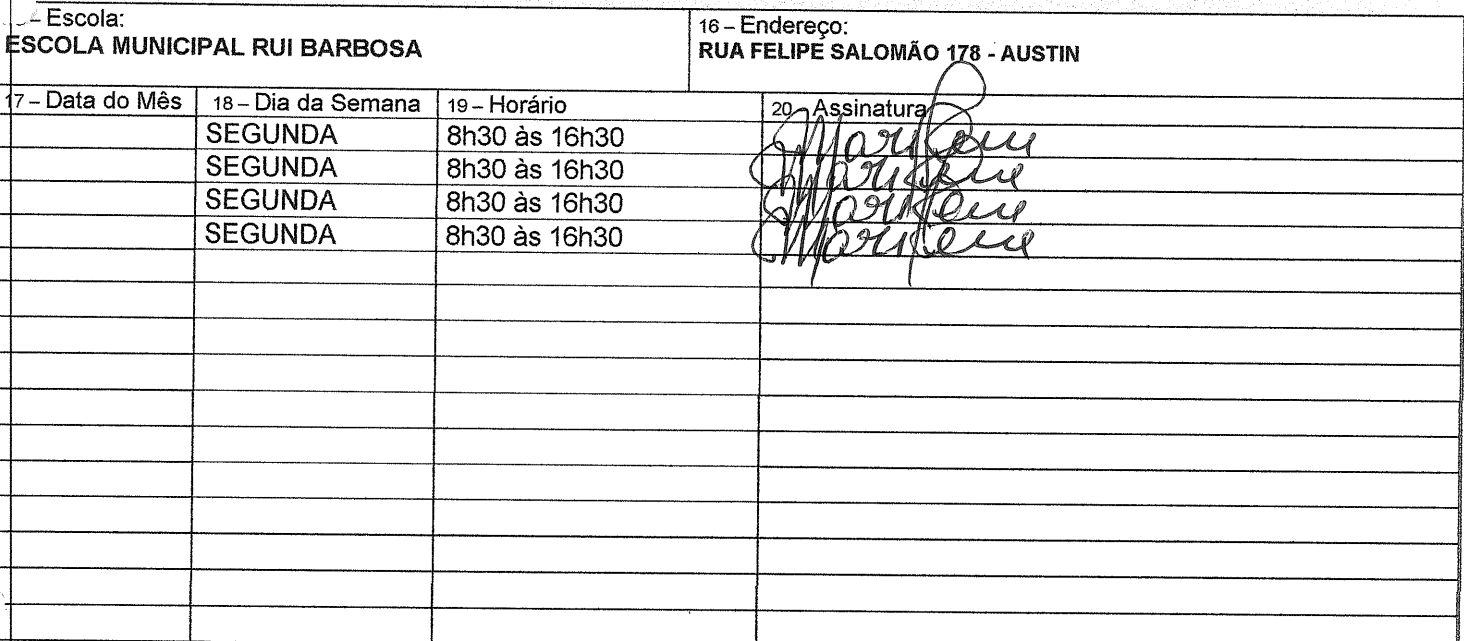 – Escola:
ESCOLA MUNICIPAL RUI BARBOSA
16 – Endereço:
RUA FELIPE SALOMÃO 178 - AUSTIN
17 – Data do Mês 18 – Dia da Semana 19 – Horário 20 – Assinatura
SEGUNDA 8h30 às 16h30 Marilene
SEGUNDA 8h30 às 16h30 Marilene
SEGUNDA 8h30 às 16h30 Marilene
SEGUNDA 8h30 às 16h30 Marilene